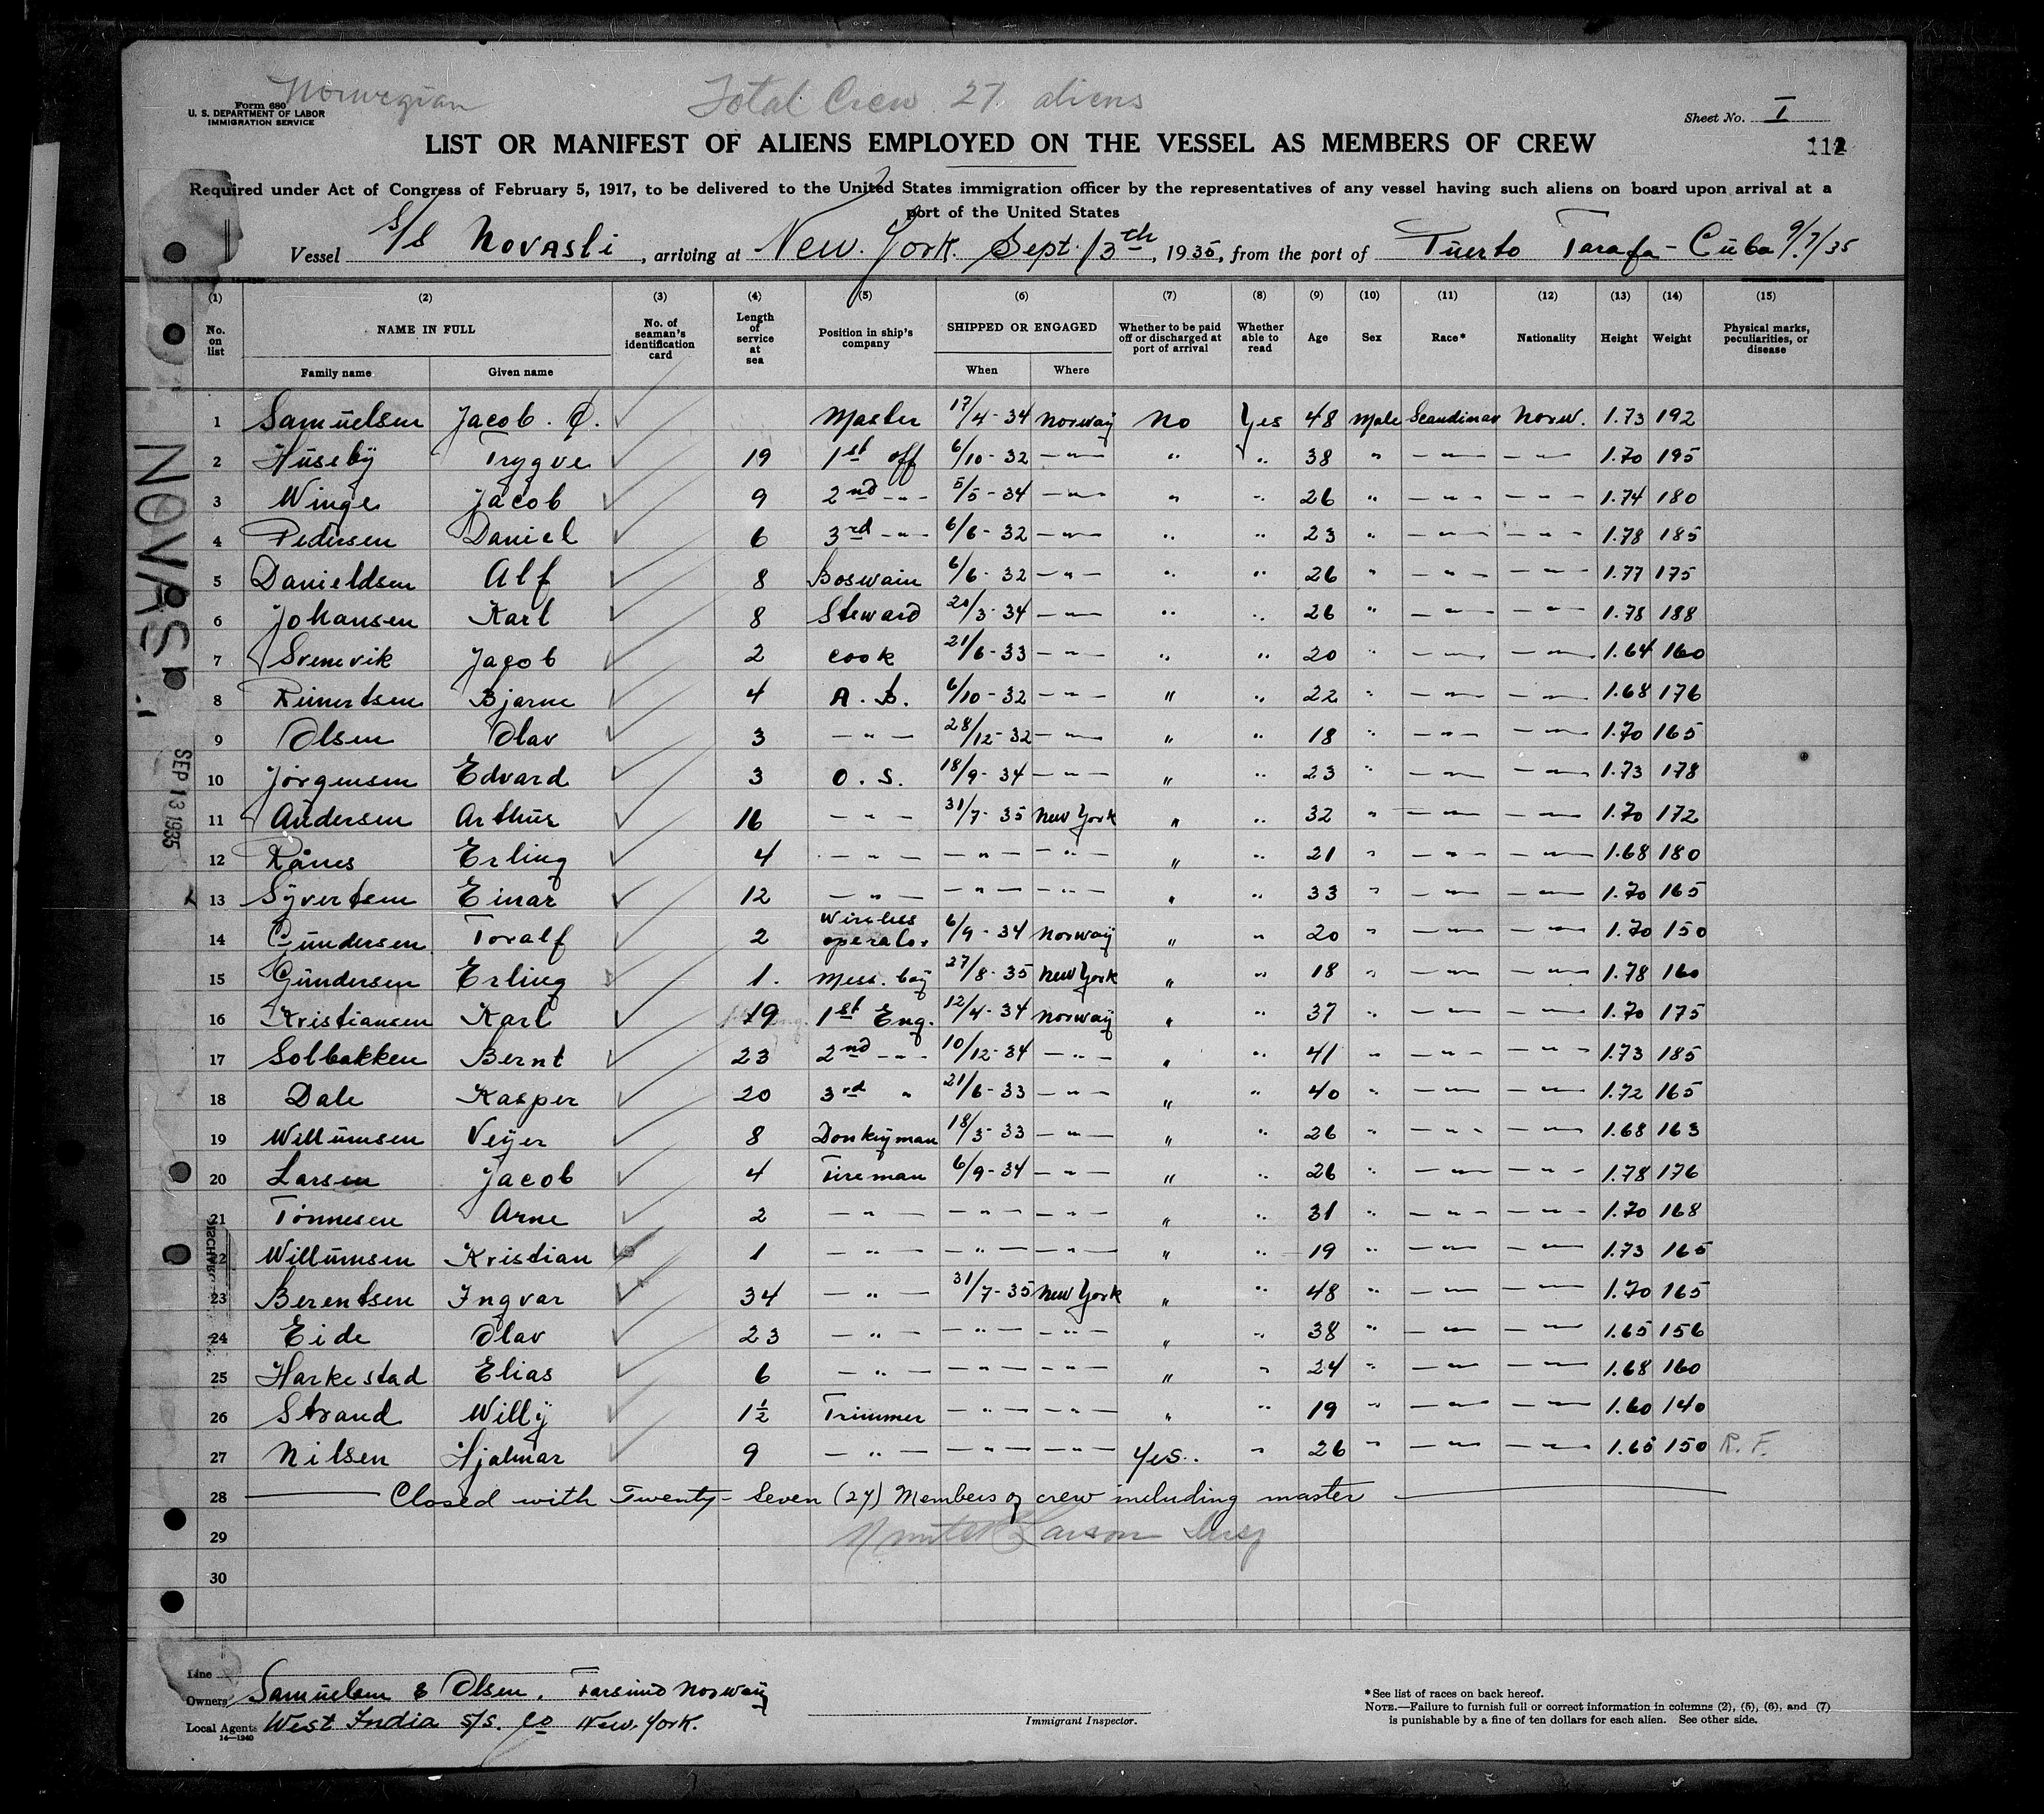 Norwegian
Total Crew 27 aliens
Form 680
U. S. DEPARTMENT OF LABOR
IMMIGRATION SERVICE
Sheet No. I
LIST OR MANIFEST OF ALIENS EMPLOYED ON THE VESSEL AS MEMBERS OF CREW
112
Required under Act of Congress of February 5, 1917, to be delivered to the United States immigration officer by the representatives of any vessel having such aliens on board upon arrival at a
port of the United States
Vessel S/S Novasli, arriving at New York. Sept. 13th, 1935, from the port of Puerto Tarafa - Cuba 9/7/35
(1) (2) (3) (4) (5) (6) (7) (8) (9) (10) (11) (12) (13) (14) (15)
No. on list NAME IN FULL No. of seaman's identification card Length of service at sea Position in ship's company SHIPPED OR ENGAGED Whether to be paid off or discharged at port of arrival Whether able to read Age Sex Race* Nationality Height Weight Physical marks, peculiarities, or disease
Family name Given name When Where
1 Samuelsen Jacob. Master 17/4-34 Norway No Yes 48 Male Scandinav Norw. 1.73 192
2 Huseby Trygve 19 1st off 6/10-32 —"— " " 38 " —"— —"— 1.70 195
3 Winge Jacob 9 2nd -"- 5/5-34 —"— " " 26 " —"— —"— 1.74 180
4 Pedersen Daniel 6 3rd -"- 6/6-32 —"— " " 23 " —"— —"— 1.78 185
5 Danieldsen Alf 8 Boswain 6/6-32 —"— " " 26 " —"— —"— 1.77 175
6 Johansen Karl 8 Steward 20/3-34 —"— " " 26 " —"— —"— 1.78 188
7 Svenevik Jacob 2 cook 21/6-33 —"— " " 20 " —"— —"— 1.64 160
8 Reinertsen Bjarne 4 A. B. 6/10-32 —"— " " 22 " —"— —"— 1.68 176
9 Olsen Olav 3 —"— 28/12-32 —"— " " 18 " —"— —"— 1.70 165
10 Jörgensen Edvard 3 O. S. 18/9-34 —"— " " 23 " —"— —"— 1.73 178
11 Andersen Arthur 16 —"— 31/7-35 New York " " 32 " —"— —"— 1.70 172
12 Rånes Erling 4 —"— —"— —"— " " 21 " —"— —"— 1.68 180
13 Syvertsen Einar 12 —"— —"— —"— " " 33 " —"— —"— 1.70 165
14 Gundersen Toralf 2 Wireless operator 6/9-34 Norway " " 20 " —"— —"— 1.70 150
15 Gundersen Erling 1. Mess. boy 27/8-35 New York " " 18 " —"— —"— 1.78 160
16 Kristiansen Karl 19 1st Eng. 12/4-34 Norway " " 37 " —"— —"— 1.70 175
17 Solbakken Bernt 23 2nd -"- 10/12-34 —"— " " 41 " —"— —"— 1.73 185
18 Dale Kasper 20 3rd " 21/6-33 —"— " " 40 " —"— —"— 1.72 165
19 Willumsen Veijer 8 Donkeyman 18/3-33 —"— " " 26 " —"— —"— 1.68 163
20 Larsen Jacob 4 Fireman 6/9-34 —"— " " 26 " —"— —"— 1.78 176
21 Tönnesen Arne 2 —"— —"— —"— " " 31 " —"— —"— 1.70 168
22 Willumsen Kristian 1 —"— —"— —"— " " 19 " —"— —"— 1.73 165
23 Berentsen Ingvar 34 —"— 31/7-35 New York " " 48 " —"— —"— 1.70 165
24 Eide Olav 23 —"— —"— —"— " " 38 " —"— —"— 1.65 156
25 Harkestad Elias 6 —"— —"— —"— " " 24 " —"— —"— 1.68 160
26 Strand Willy 1½ Trimmer —"— —"— " " 19 " —"— —"— 1.60 140
27 Nilsen Hjalmar 9 —"— —"— —"— Yes.. " 26 " —"— —"— 1.65 150 R. F.
28 Closed with Twenty-Seven (27) Members of crew including master
29 Larson Insp
30
NOVASLI
SEP 13 1935
Line
Owners Samuelsen & Olsen. Farsund Norway
Local Agents West India S/S. Co New-York.
14—1240
Immigrant Inspector.
*See list of races on back hereof.
NOTE.—Failure to furnish full or correct information in columns (2), (5), (6), and (7)
is punishable by a fine of ten dollars for each alien. See other side.